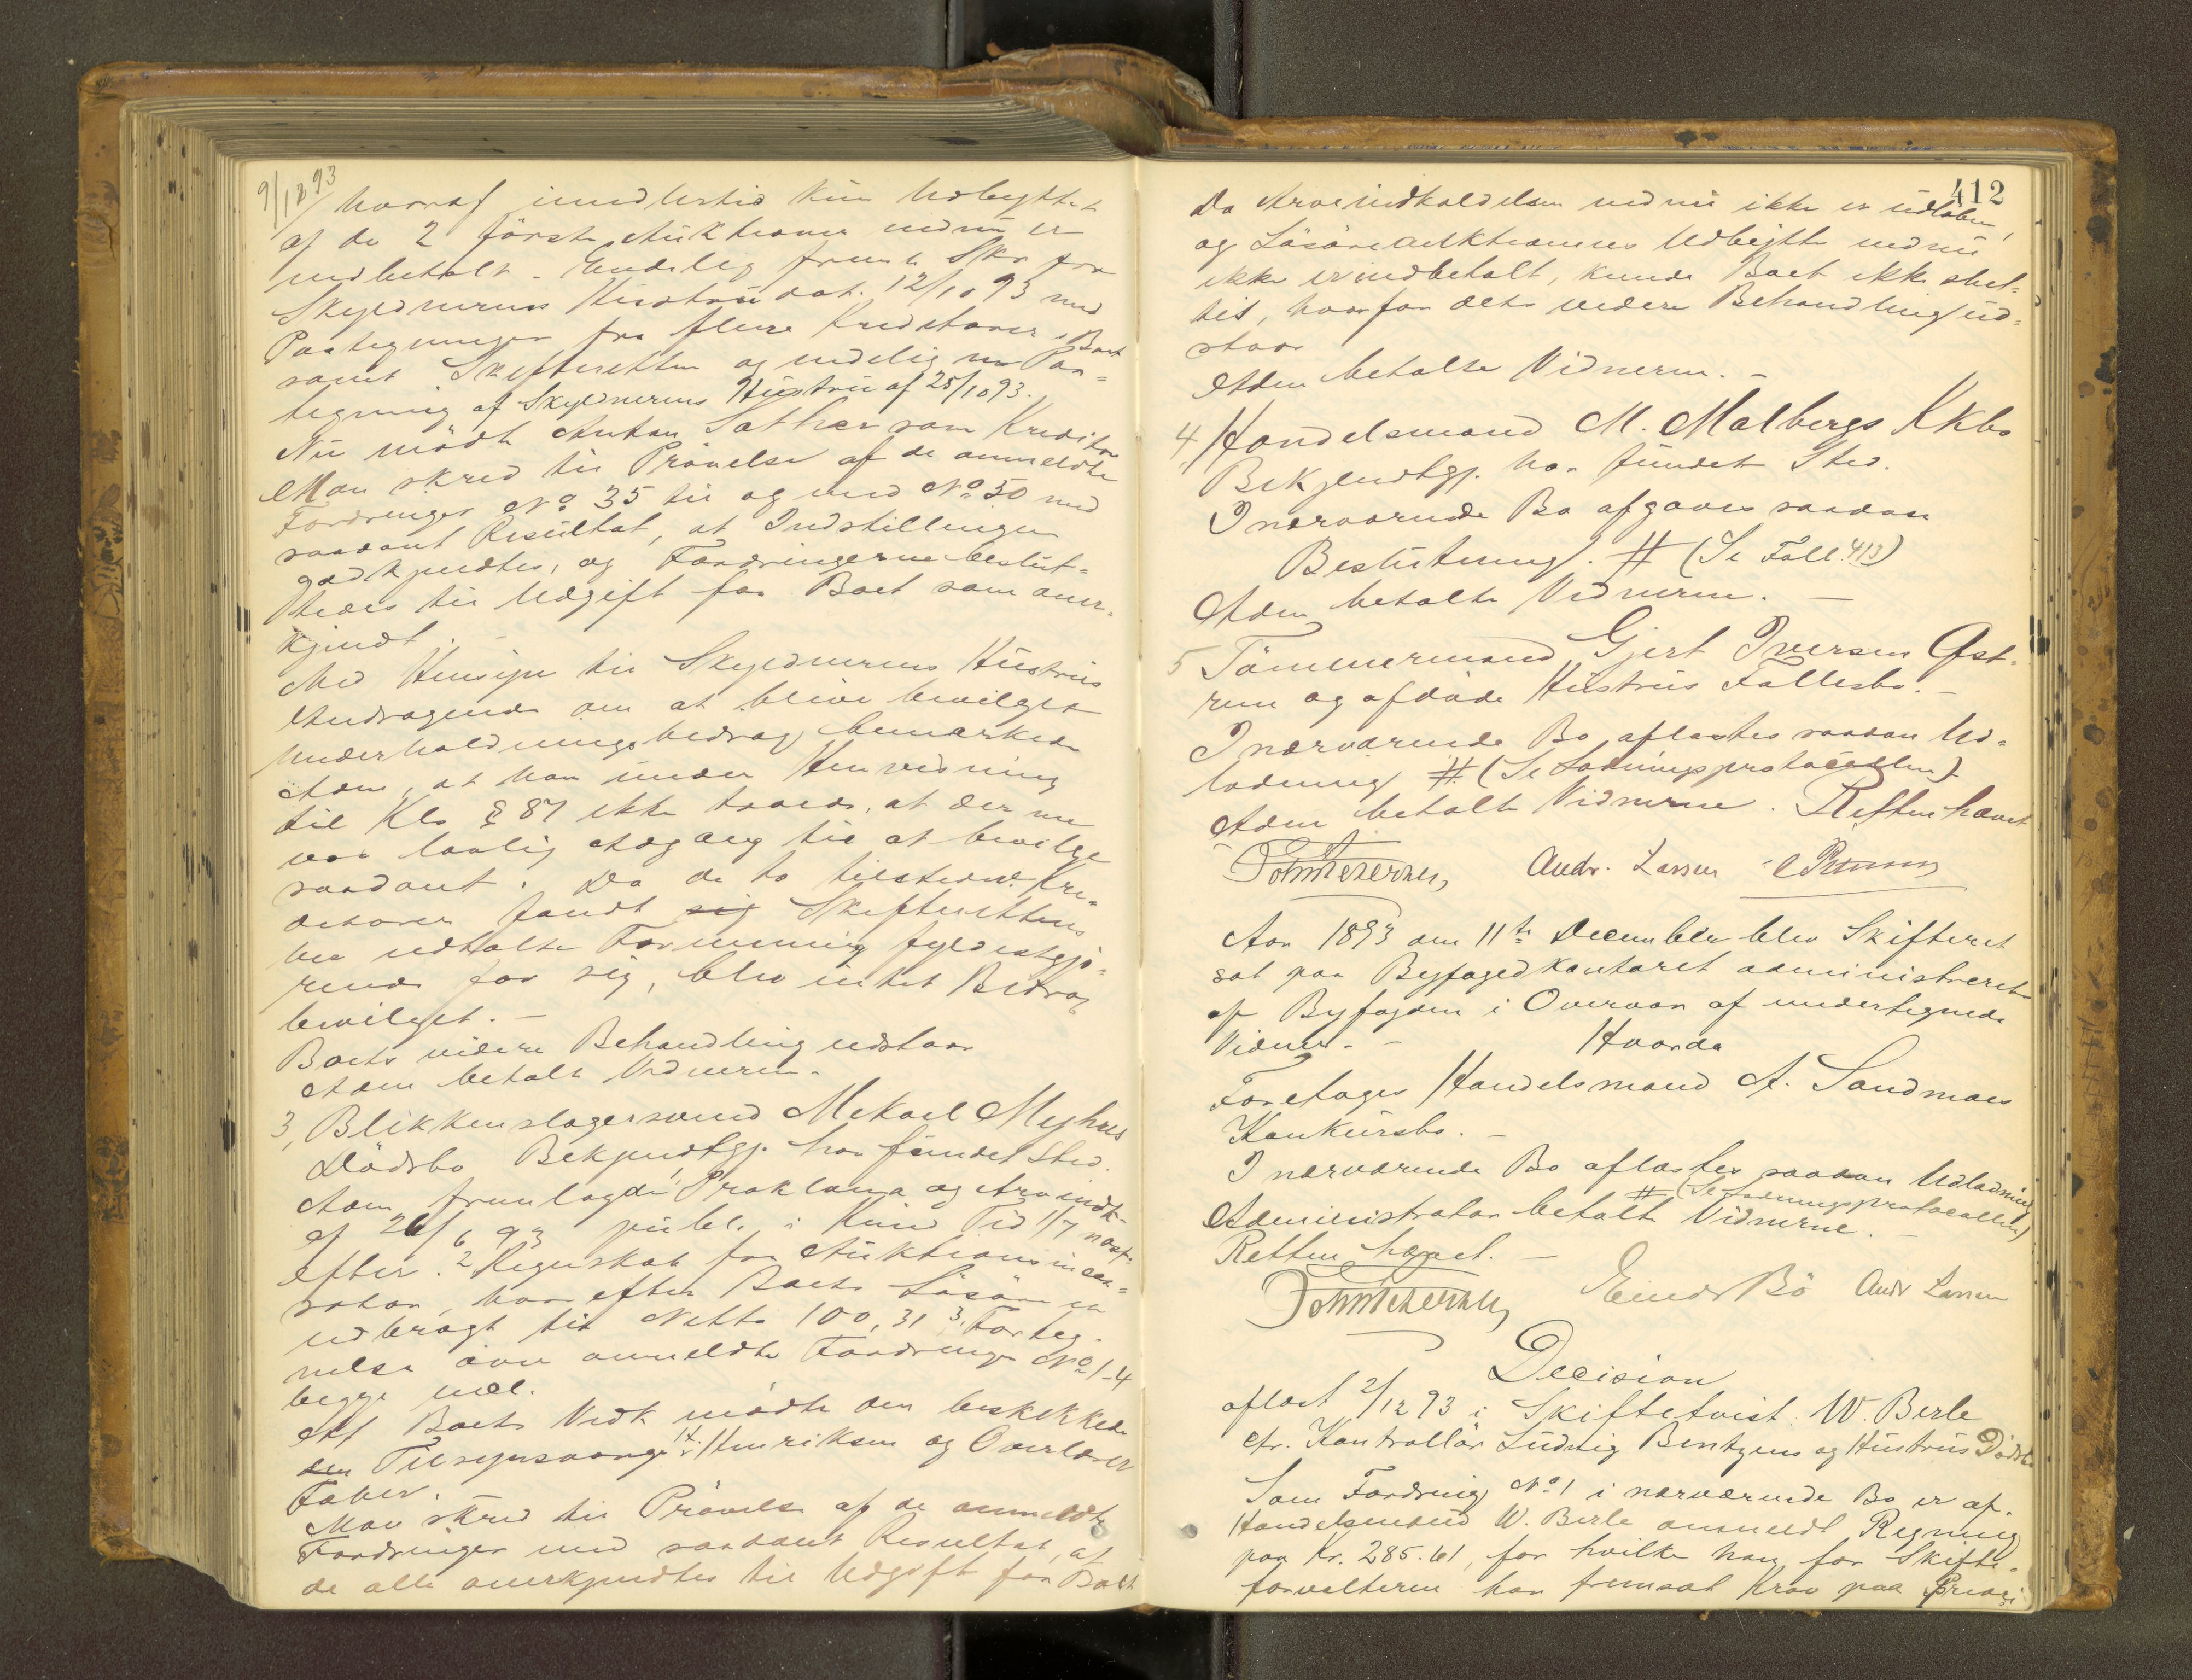 9/12 93
hvoraf imidlertid kun Udbyttet
af de 2 förste Auktioner endnu er
indbetalt. Endelig freml. Skr fra
Skyldnerens Hustru dat. 12/10 93 med
Paategninger fra flere Kreditorer,
samt Skifteretten og endelig Paa-
tegning af Skyldnerens Hustru af 25/10 93.
Nu mödte Anton Sæther som Kreditor
Man skred til Prövelse af de anmeldte
Fordringer No 35 til og med No 50 med
saadant Resultat, at Indstillingen
godkjendtes, og Fordringerne beslut-
tedes til Udgift for Boet som aner-
kjendt.
Med Hensyn til Skyldnerens Hustrus
Andragende om at blive bevilget
Underholdningsbidrag bemærkede
Adm, at han under Henvisning
til Kls § 87 ikke troede, at der nu
var lovlig Adgang til at bevilge
saadant. Da de to tilstedev. Kre-
ditorer fandt sig Skifterettens
her udtalte Formening fyldestgjö-
rende for sig, blev intet Bidrag
bevilget. -
Boets videre Behandling udstaar
Adm betalte Vidnerne.
3, Blikkenslagersvend Mekael Myhres
Dödsbo Bekjendtgj. har fundet Sted.
Adm fremlagde 1 Proklama og Arveindk.
af 26/6 93 publ. i Kund Tid 1/7 næst-
efter. 2 Regnskab fra Auktionsincas-
sator, hvorefter Boets Lösöre er
udbragt til Netto 100,31 3, Forteg-
nelse over anmeldte Fordringer No 1-4
begge incl.
Af Boets Vedk. mödte den beskikkede
den Tilsynsværge H. Henriksen og Overlærer
Faber.
Man skred til Prövelse af de anmeldte
Fordringer med saadant Resultat, at
de alle anerkjendtes til Udgift for Boet
412
Da Arveindkaldelsen endnu ikke er udloben,
og Lösöreauktionens Udbytte endnu
ikke er indbetalt, kunde Boet ikke slut-
tes, hvorfor dets videre Behandling ud-
staar
Adm betalte Vidnerne. -
4, Handelsmand M. Malbergs Kkbo
Bekjendtgj. har fundet Sted.
I nærværende Bo afgaves saadan
Beslutning. # (Se Foll. 413)
Adm betalte Vidnerne. -
5 Tömmermand Gjert Iversen Ast-
rum og afdöde Hustrus Fællesbo. -
I nærværende Bo aflæstes saadan Ud-
lodning # (Se Lodningsprotocollen)
Adm betalte Vidnerne. Retten hævet
Andr. Larsen
Aar 1893 den 11te December blev Skifteret
sat paa Byfogedkontoret administreret
af Byfogden i Overvær af undertegnede
Vidner. - Hvorda
Foretages Handelsmand A. Sandmoes
Konkursbo. -
I nærværende Bo aflæstes saadan Udlodning
# (Se Lodningsprotocollen)
Administrator betalte Vidnerne. -
Retten hævet. -
Einar Bö Andr Larsen
Decision
aflæst 2/12 93 i Skiftetvist W. Berle
ctr. Kontrollör Ludvig Bentzens og Hustrus Dödsbo
Som Fordring No 1 i nærværende Bo er af
Handelsmand W. Berle anmeldt Regning
paa Kr. 285.61, for hvilke han for Skifte-
forvalteren har fremsat Krav paa Priori-